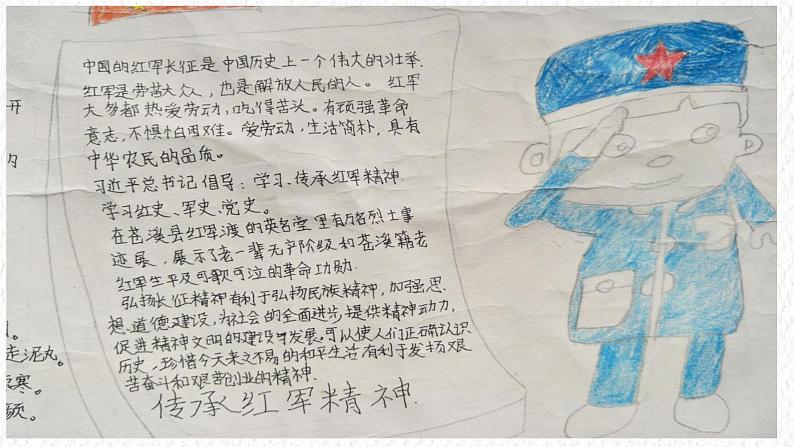 中国的红军长征是中国历史上一个伟大的壮举.
红军是劳苦大众人，也是解放人民的人。 红军
大多都热爱劳动，吃得苦头。有顽强革命
意志，不惧怕困难。爱劳动，生活简朴，具有
中华农民的品质。
习近平总书记倡导：学习、传承红军精神.
学习红史、军史、党史。
在苍溪县红军渡的英名堂里有万名烈士事
迹展，展示了老一辈无产阶级和苍溪籍老
红军生平及可歌可泣的革命功勋.
弘扬长征精神有利于弘扬民族精神，加强思
想、道德建设，为社会的全面进步提供精神动力，
促进精神文明的建设与发展，可以使人们正确认识
历史，珍惜今天来之不易的和平生活有利于发扬艰
苦奋斗和艰苦创业的精神.
传承红军精神.
开
走泥丸。
寒。
颜。